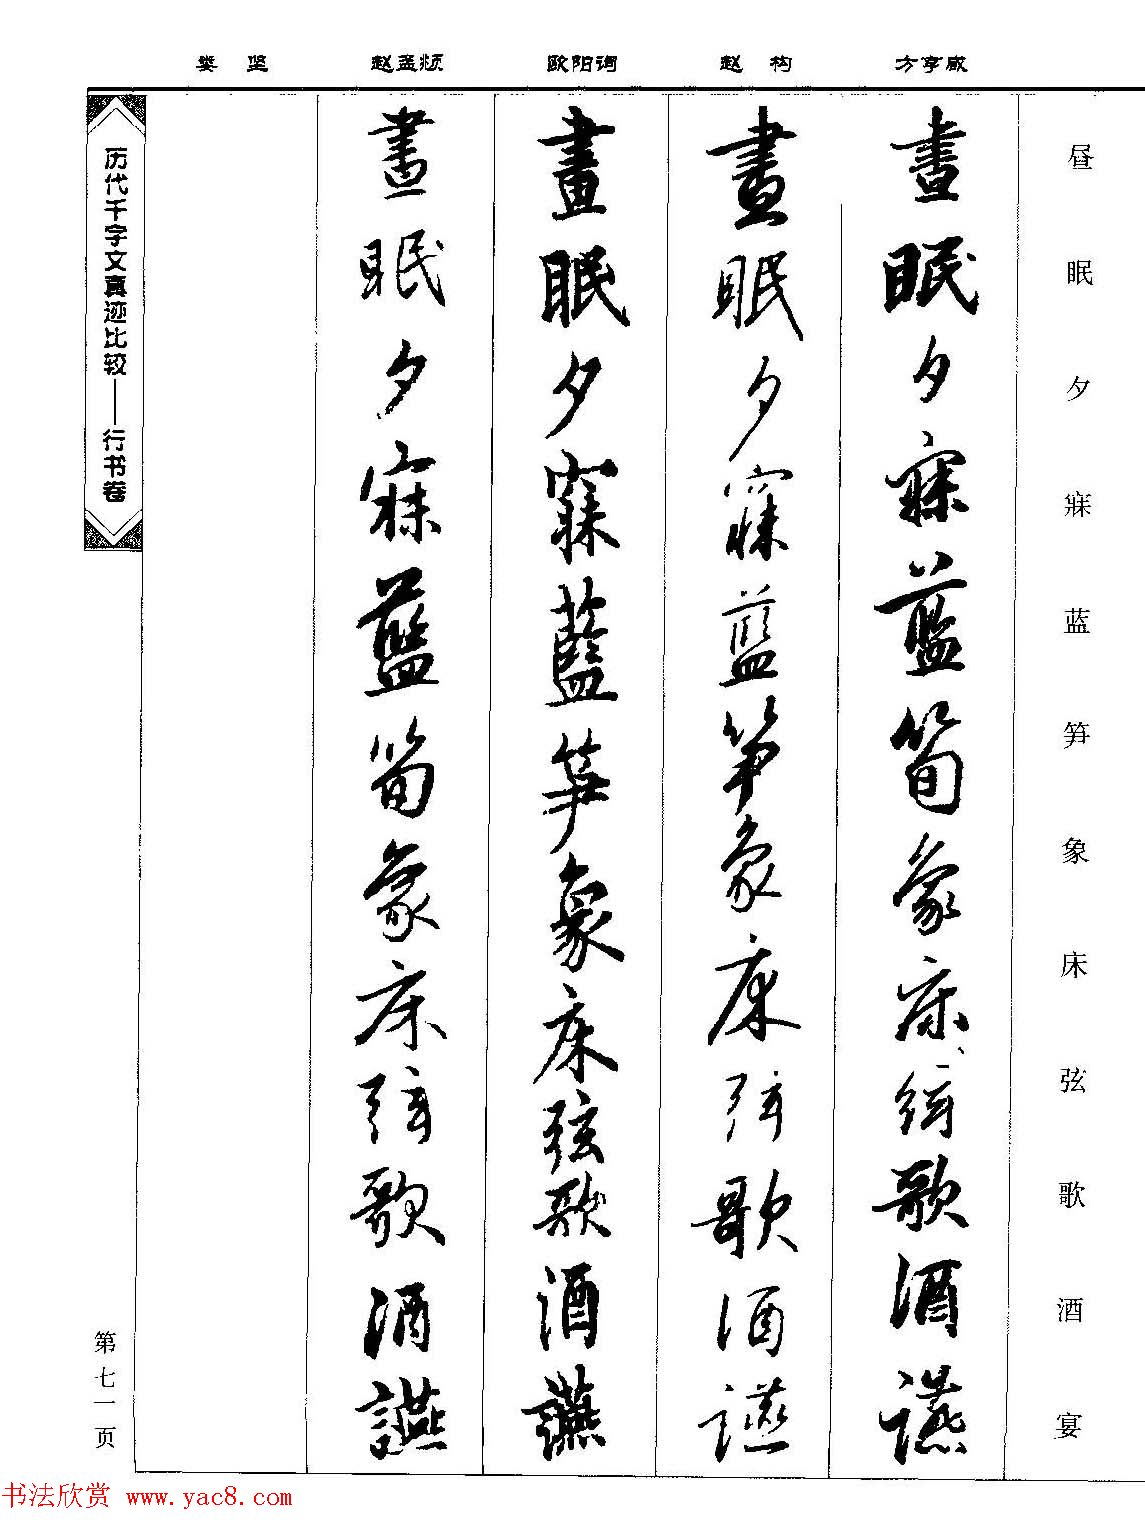 娄 坚 赵孟頫 欧阳询 赵 构 方亨咸
昼眠夕寐蓝笋象床弦歌酒宴
晝眠夕寐藍筍象床絃歌酒讌
晝眠夕寐藍笋象床弦歌酒讌
晝眠夕寐藍笋象床弦歌酒讌
晝眠夕寐藍筍象床弦歌酒讌
历代千字文真迹比较——行书卷
第七一页
书法欣赏 www.yac8.com